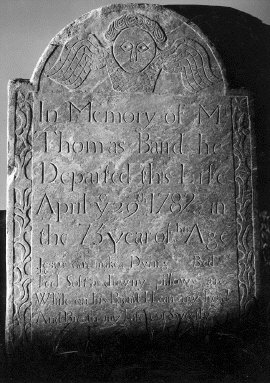 In Memory of Mr
Thomas Baird he
Departed this Life
April ye 29th 1782 in
the 73 year of his Age
Jesus can make a Dying Bed
Feel Soft as downy pillows are
While on his Breast I lean my head
And Breathe my Life out Sweetly